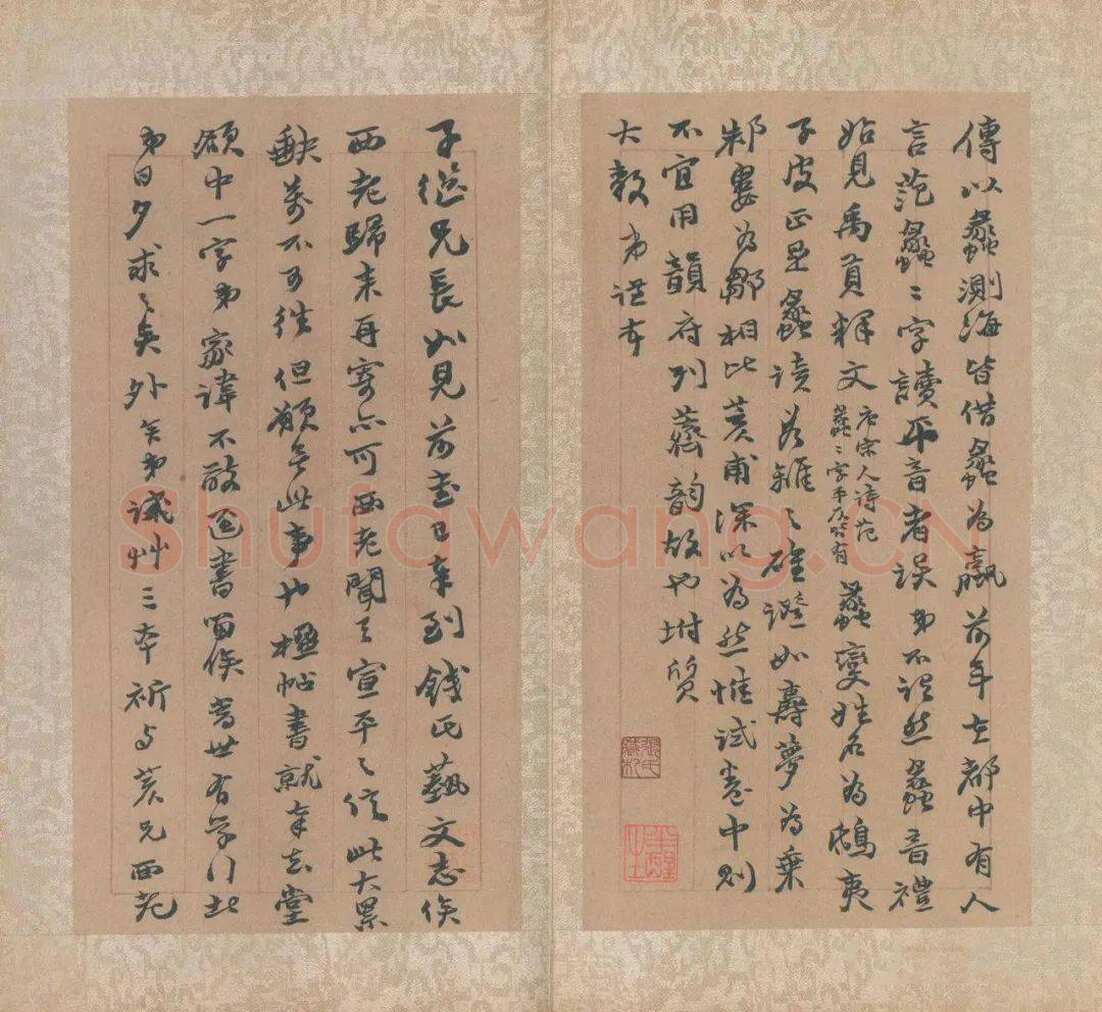 傳以蠡測海皆借蠡為蠃前年在都中有人
言范蠡蠡字讀平音者誤弟不謂然蠡音禮
始見禹貢釋文唐宋人詩范
蠡蠡字平仄皆有蠡變姓名為鴟夷
子皮正是蠡讀為離之確證如壽夢為乘
邾婁為鄒相比葵甫深以為然惟試卷中則
不宜用韻府列薺韻故也坿質
大教弟謹又
子繩兄長如見前書已奉到錢氏藝文志俟
西老歸來再寄亦可西老聞之宣平之信此大累
缺萬不可從但願無此事也楹帖書就奉去堂
額中一字弟家諱不敢道書留俟當世有学门此
弟日夕求之矣外兵弟識艸三本祈与葵兄西老
Shufawang.CN